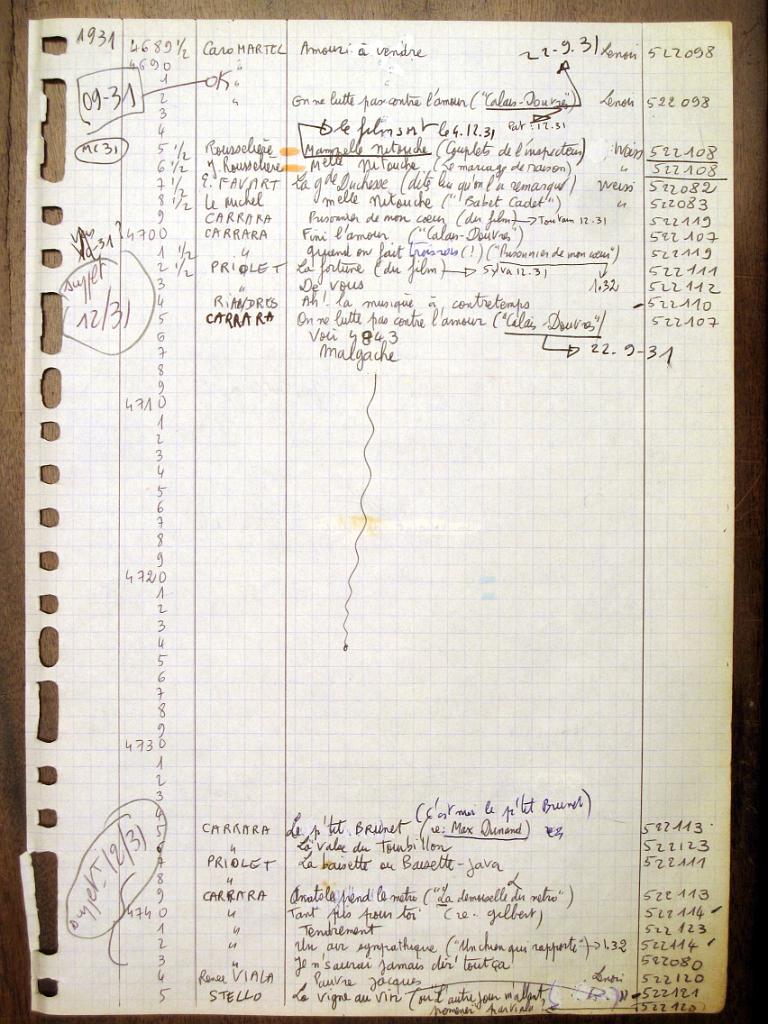 1931 4689 1/2 Caro MARTEL Amour à vendre 22-9.31 Lenoir 522098
4690 "
09-31 1 OK "
2 " On ne lutte pas contre l'amour ("Calais-Douvres") Lenoir 522098
3
4 le film sort le 4.12.31 Pat: 12.31
Mc 31 5 1/2 Rousselière Mamzelle Nitouche (Couplets de l'inspecteur) Weiss 522108
6 1/2 J. Rousselière Melle Nitouche (Le mariage de raison) " 522108
7 1/2 E. FAVART La gde Duchesse (dite lui qu'on l'a remarqué) Weiss 522082
8 1/2 Le Michel Melle Nitouche ("Babet Cadet") " 522083
9 CARRARA Prisonnier de mon cœur (du film) → 12.31 522119
4700 CARRARA Fini l'amour ("Calais-Douvres") 522107
1 1/2 " quand on fait trois (!) ("Prisonnier de mon cœur") 522119
suffet 12/31 2 1/2 PRIOLET La fortune (du film) → Sylva 12.31 522111
3 " De vous 1.32 522112
4 RIANDRES Ah! la musique à contretemps 522110
5 CARRARA On ne lutte pas contre l'amour ("Calais-Douvres") 522107
6 Voir 4843 → 22.9-31
7 Malgache
8
9
4710
1
2
3
4
5
6
7
8
9
4720
1
2
3
4
5
6
7
8
9
4730
1
2
3
4 (C'est moi le p'tit Brunet)
12/31 5 CARRARA Le p'tit BRUNET (re: Max Dunand) 522113
6 " La valse du Tourbillon 522123
7 PRIOLET La baisette ou Baisette-Java 522111
8 "
9 CARRARA Anatole prend le métro ("La demoiselle du métro") 522113
4740 " Tant pis pour toi (re. gilbert) 522114
1 " Tendrement 522123
2 " Un air sympathique ("Un chien qui rapporte") → 1.32 522114
3 " Je n'saurai jamais dir' tout ça 522080
4 Renée VIALA Pauvre Jacques Lenoir 522120
5 STELLO La vigne au vin (où l'autre jour m'allant " 522121
promener par 522120